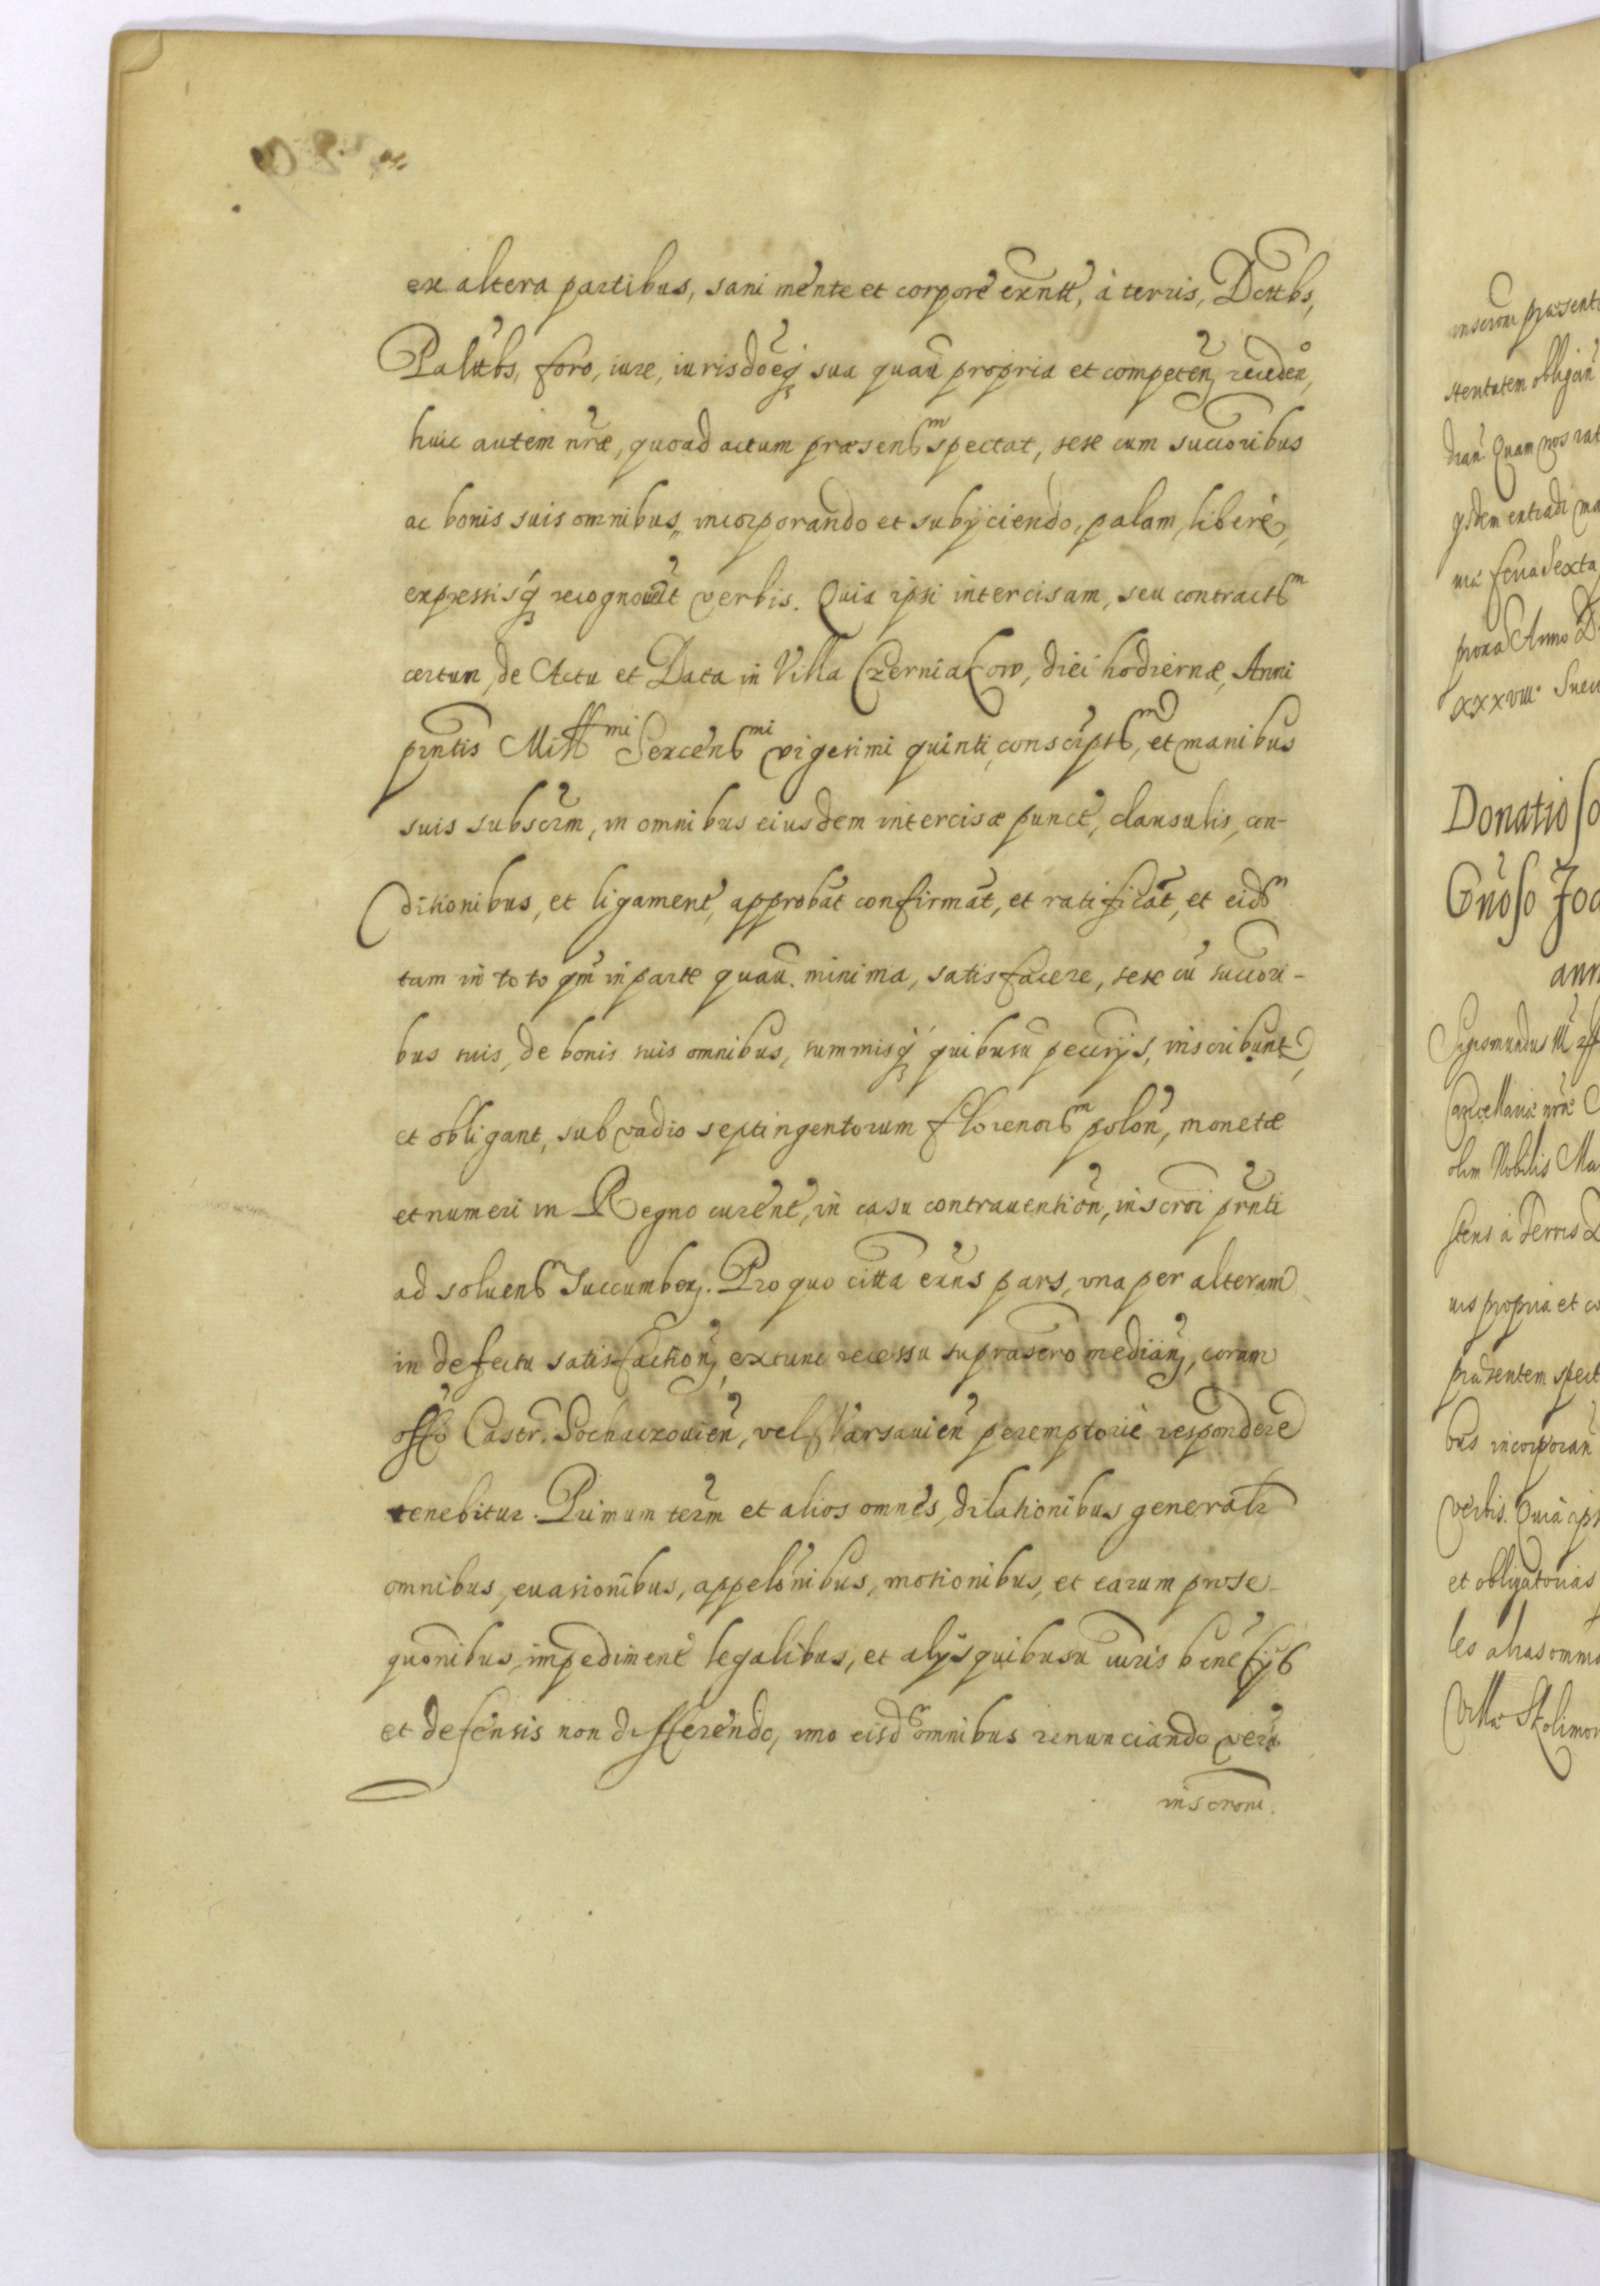 ex altera partibus, sani mente et corpore exñtt, à terris, Dcttbs,
Palttbs, foro, iure, iurisdoēq̃ sua quaũ propria et competeñ receden̄,
huic autem nr̃æ, quoad actum præsens spectat, sese cum succoribus
ac bonis suis omnibus, incorporando et subijciendo, palam, liberè,
expressisq́ recognouēt verbis. Quia ipsi intercisam, seu contractm
certum, de Actu et Data in Villa Czerniakow, diei hodiernæ, Anni
pr̃ntis Millmi Sexcenmi vigesimi quinti, conscriptm, et manibus
suis subscr̃m, in omnibus eiusdem intercisæ punct̃, clausulis, con-
ditionibus, et ligament̃, approbãt confirmãt, et ratificãt, et eidm
tam in toto qm̃ in parte quaũ. minima, satisfacere, sese cũ succori-
bus suis, de bonis suis omnibus, summisq́ quibusũ pecũrijs, inscribunt,
et obligant, sub vadio septingentorum florenorm polon̄, monetæ
et numeri in Regno curent̃, in casu contrauention̄, inscr̃oi pr̃nti
ad soluenm succumben. Pro quo citta exñs pars, vna per alteram
in defectu satisfaction̄, extunc recessu suprascro median̄, coram
offo Castr. Sochaczouien̄, vel Varsauien̄ peremptoriè respondere
tenebitur. Primum term̃ et alios omnes, dilationibus generalr
omnibus, euasionibus, appelõnibus, motionibus, et earum prose-
quõnibus, impediment̃ legalibus, et alijs quibusũ iuris benefijs
et defensis non differendo, imo eisdm omnibus renunciando verũ
inscroni.
inscroni præsenti
stentatem obligan̄
dran̄. Quam nos rat
qdem extradi ma
ma feria Sexta
proxa Anno D
XXXVIII. Suet
Donatio so
Gñoso Joa
ann
Sigismundus III
Cancellariæ nr̃æ
olim Nobilis Ma
stens à Terris D
uis propria et co
præsentem spect
bus incorporan̄
verbis. Quia ips
et obligatorias
les alias omm
Villa Skolimow